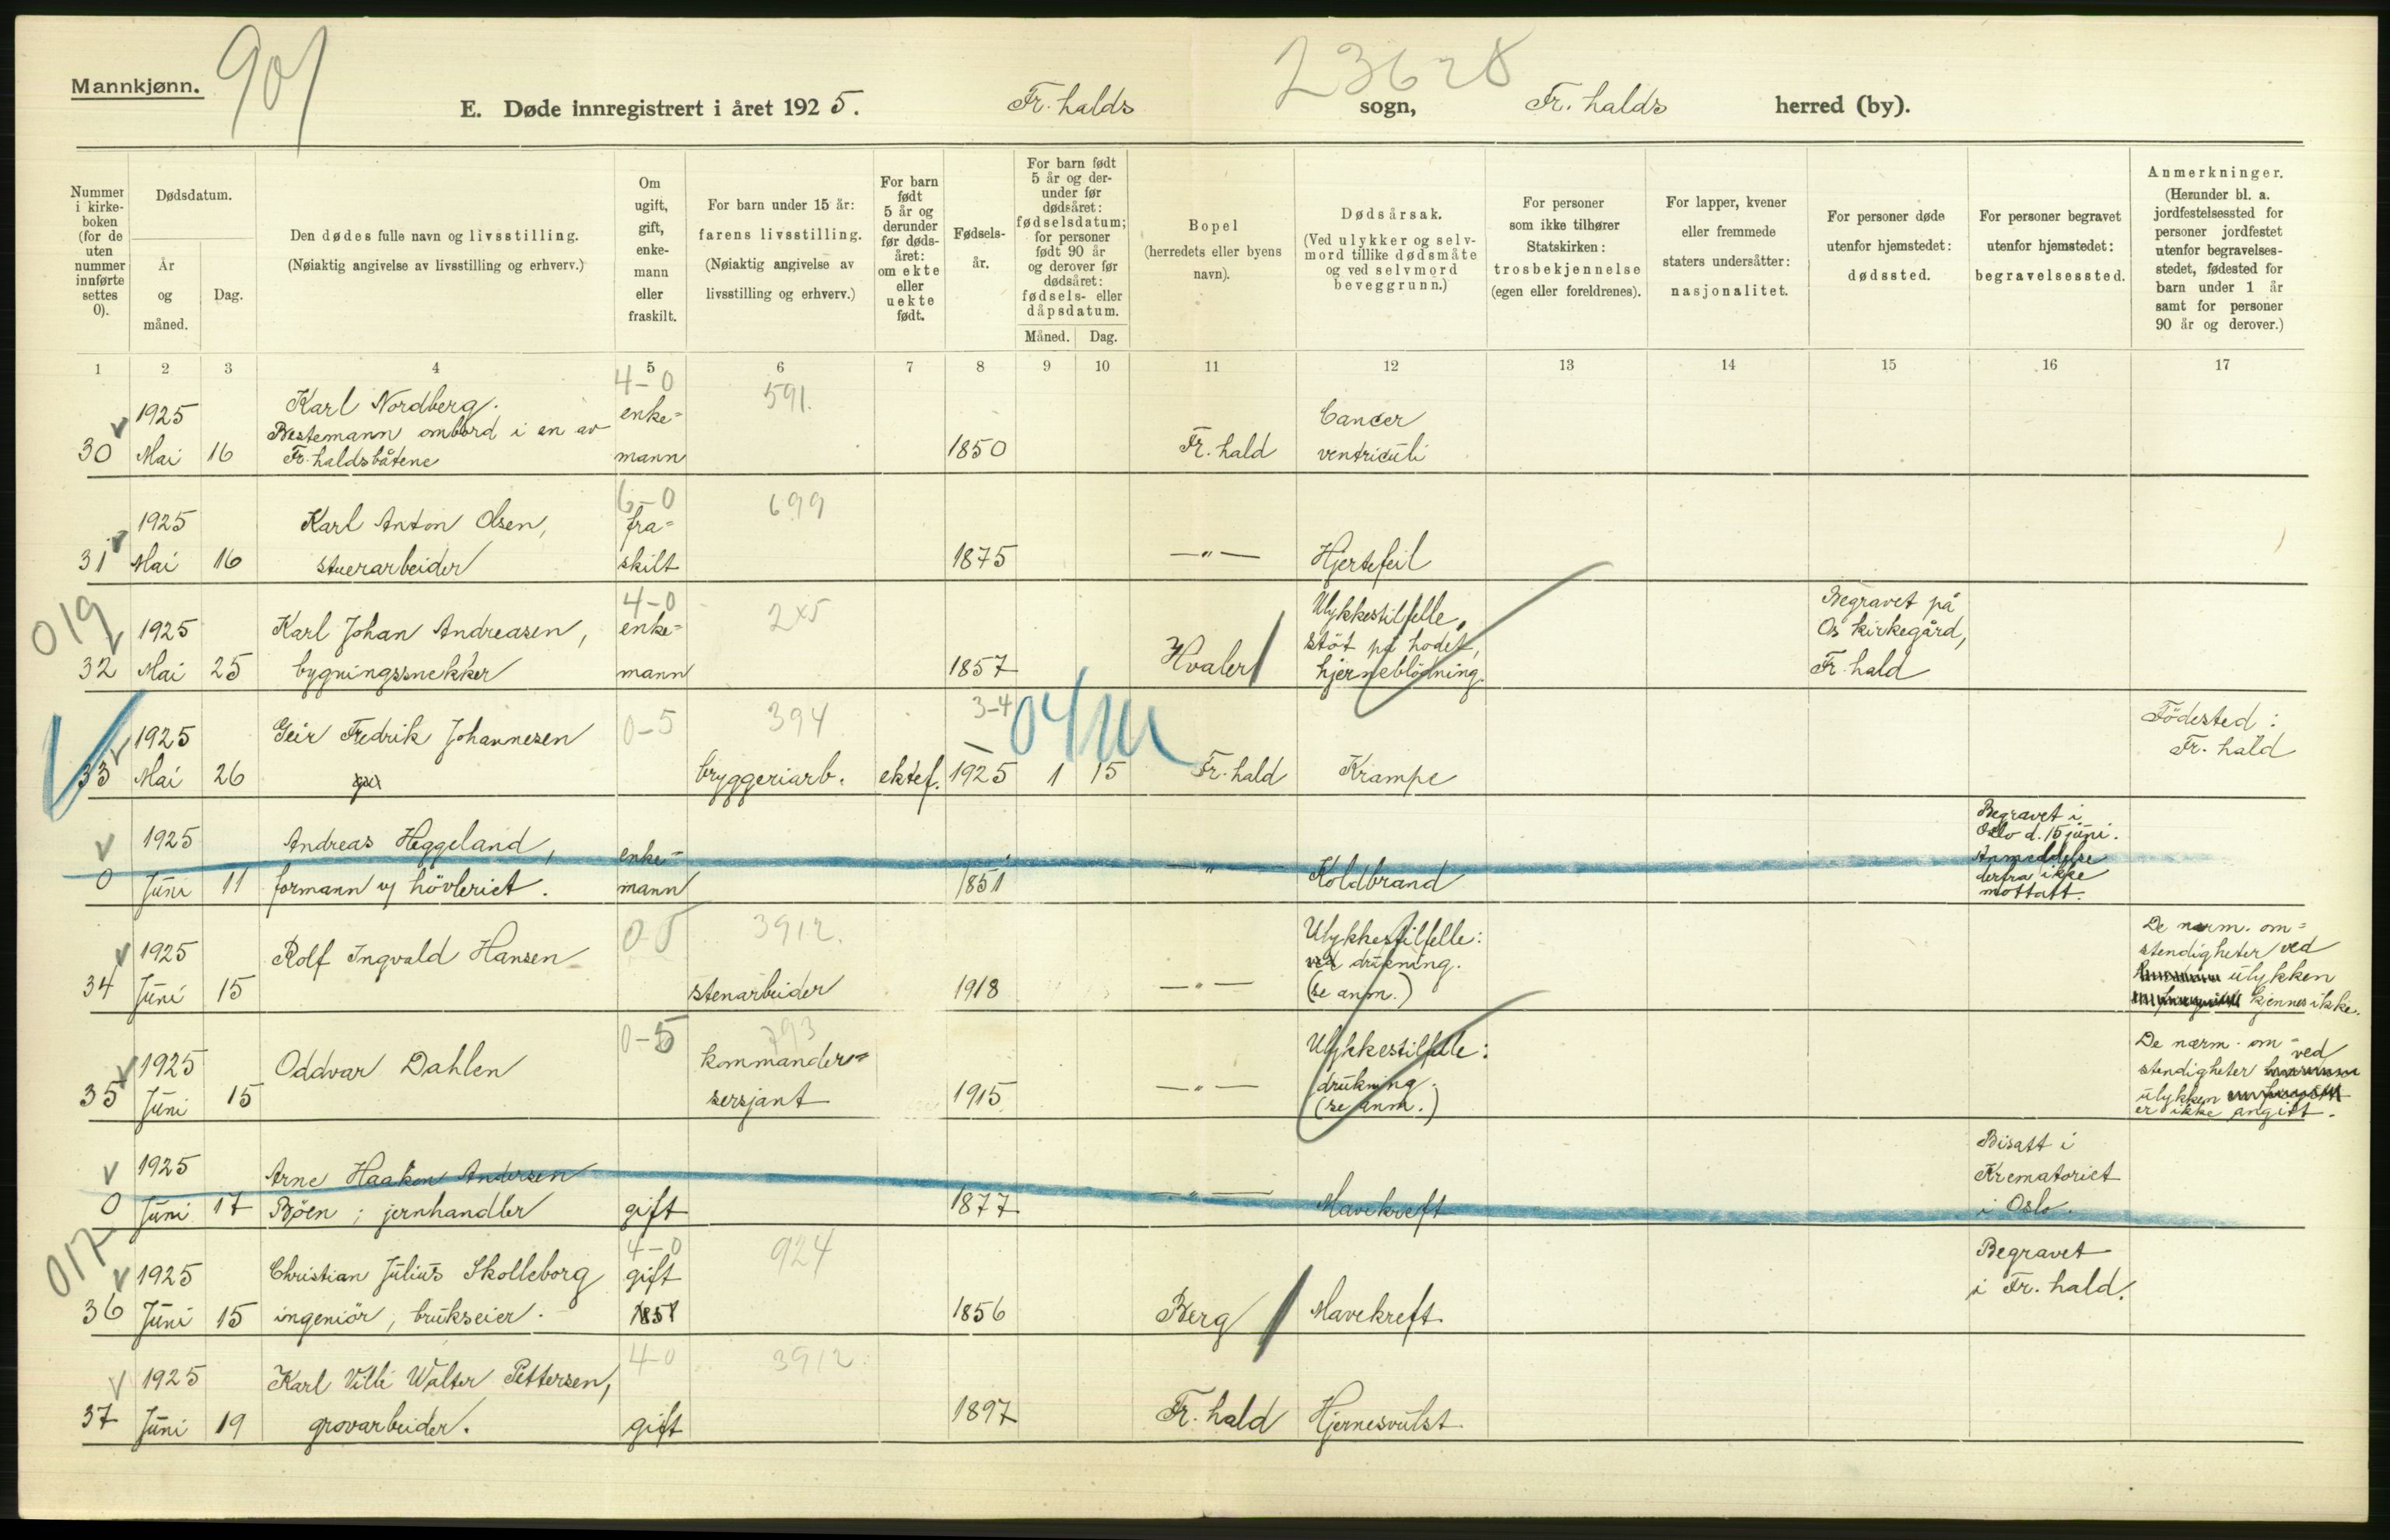 Mannkjønn.
901
23628
E. Døde innregistrert i året 1925. Fr. halds sogn, Fr. halds herred (by).
Nummer i kirke-boken (for de uten nummer innførte settes 0).
Dødsdatum.
År og måned.
Dag.
Den dødes fulle navn og livsstilling.
(Nøiaktig angivelse av livsstilling og erhverv.)
Om ugift, gift, enke-mann eller fraskilt.
For barn under 15 år:
farens livsstilling.
(Nøiaktig angivelse av livsstilling og erhverv.)
For barn født 5 år og derunder før døds-året: om ekte eller uekte født.
Fødsels-år.
For barn født 5 år og der-under før dødsåret: fødselsdatum; for personer født 90 år og derover før dødsåret: fødsels- eller dåpsdatum.
Måned. Dag.
Bopel
(herredets eller byens navn).
Dødsårsak.
(Ved ulykker og selv-mord tillike dødsmåte og ved selvmord beveggrunn.)
For personer som ikke tilhører Statskirken: trosbekjennelse (egen eller foreldrenes).
For lapper, kvener eller fremmede staters undersåtter: nasjonalitet.
For personer døde utenfor hjemstedet: dødssted.
For personer begravet utenfor hjemstedet: begravelsessted.
Anmerkninger.
(Herunder bl. a. jordfestelsessted for personer jordfestet utenfor begravelses-stedet, fødested for barn under 1 år samt for personer 90 år og derover.)
1 2 3 4 5 6 7 8 9 10 11 12 13 14 15 16 17
4-0 591.
1925 Karl Nordberg. enke= Cancer
Bestemann ombord i en av
30 Mai 16 Fr. haldsbåtene mann 1850 Fr. hald ventriculi
6-0 699
1925 Karl Anton Olsen, fra=
31 Mai 16 stuerarbeider skilt 1875 —"— Hjertefeil
019 4-0 2x5
1925 Karl Johan Andreasen, enke= Ulykkestilfelle, Begravet på
støt på hodet, Os kirkegård,
32 Mai 25 bygningssnekker mann 1857 Hvaler hjerneblødning. Fr. hald
0-5 394 3-4 04/
1925 Geir Fredrik Johannesen Födested:
Fr. hald
33 Mai 26 bryggeriarb. ektef. 1925 1 15 Fr. hald Krampe
1925 Andreas Heggeland, enke= Begravet i
Oslo d. 15 juni.
Anmeldelse
0 Juni 11 formann v/ hövleriet. mann 1851 " Koldbrand derfra ikke
mottatt.
3912.
1925 Rolf Ingvald Hansen Ulykkestilfelle: De nærm. om=
ved drukning. stendigheter ved
34 Juni 15 stenarbeider 1918 —"— (se anm.) ulykken
kjennes ikke.
0-5 793
1925 Oddvar Dahlen kommander= Ulykkestilfelle: De nærm. om=
drukning. stendigheter ved
35 Juni 15 sersjant 1915 —"— (se anm.) ulykken
er ikke angitt.
1925 Arne Haakon Andersen Bisatt i
Krematoriet
0 Juni 17 Böen; jernhandler gift 1877 —"— Mavekreft i Oslo.
017 4-0 924
1925 Christian Julius Skolleborg gift Begravet
i Fr. hald.
36 Juni 15 ingeniör, brukseier. 1851 1856 Berg Mavekreft.
4-0 3912
1925 Karl Villi Walter Pettersen,
37 Juni 19 grovarbeider. gift 1897 Fr. hald Hjernesvulst